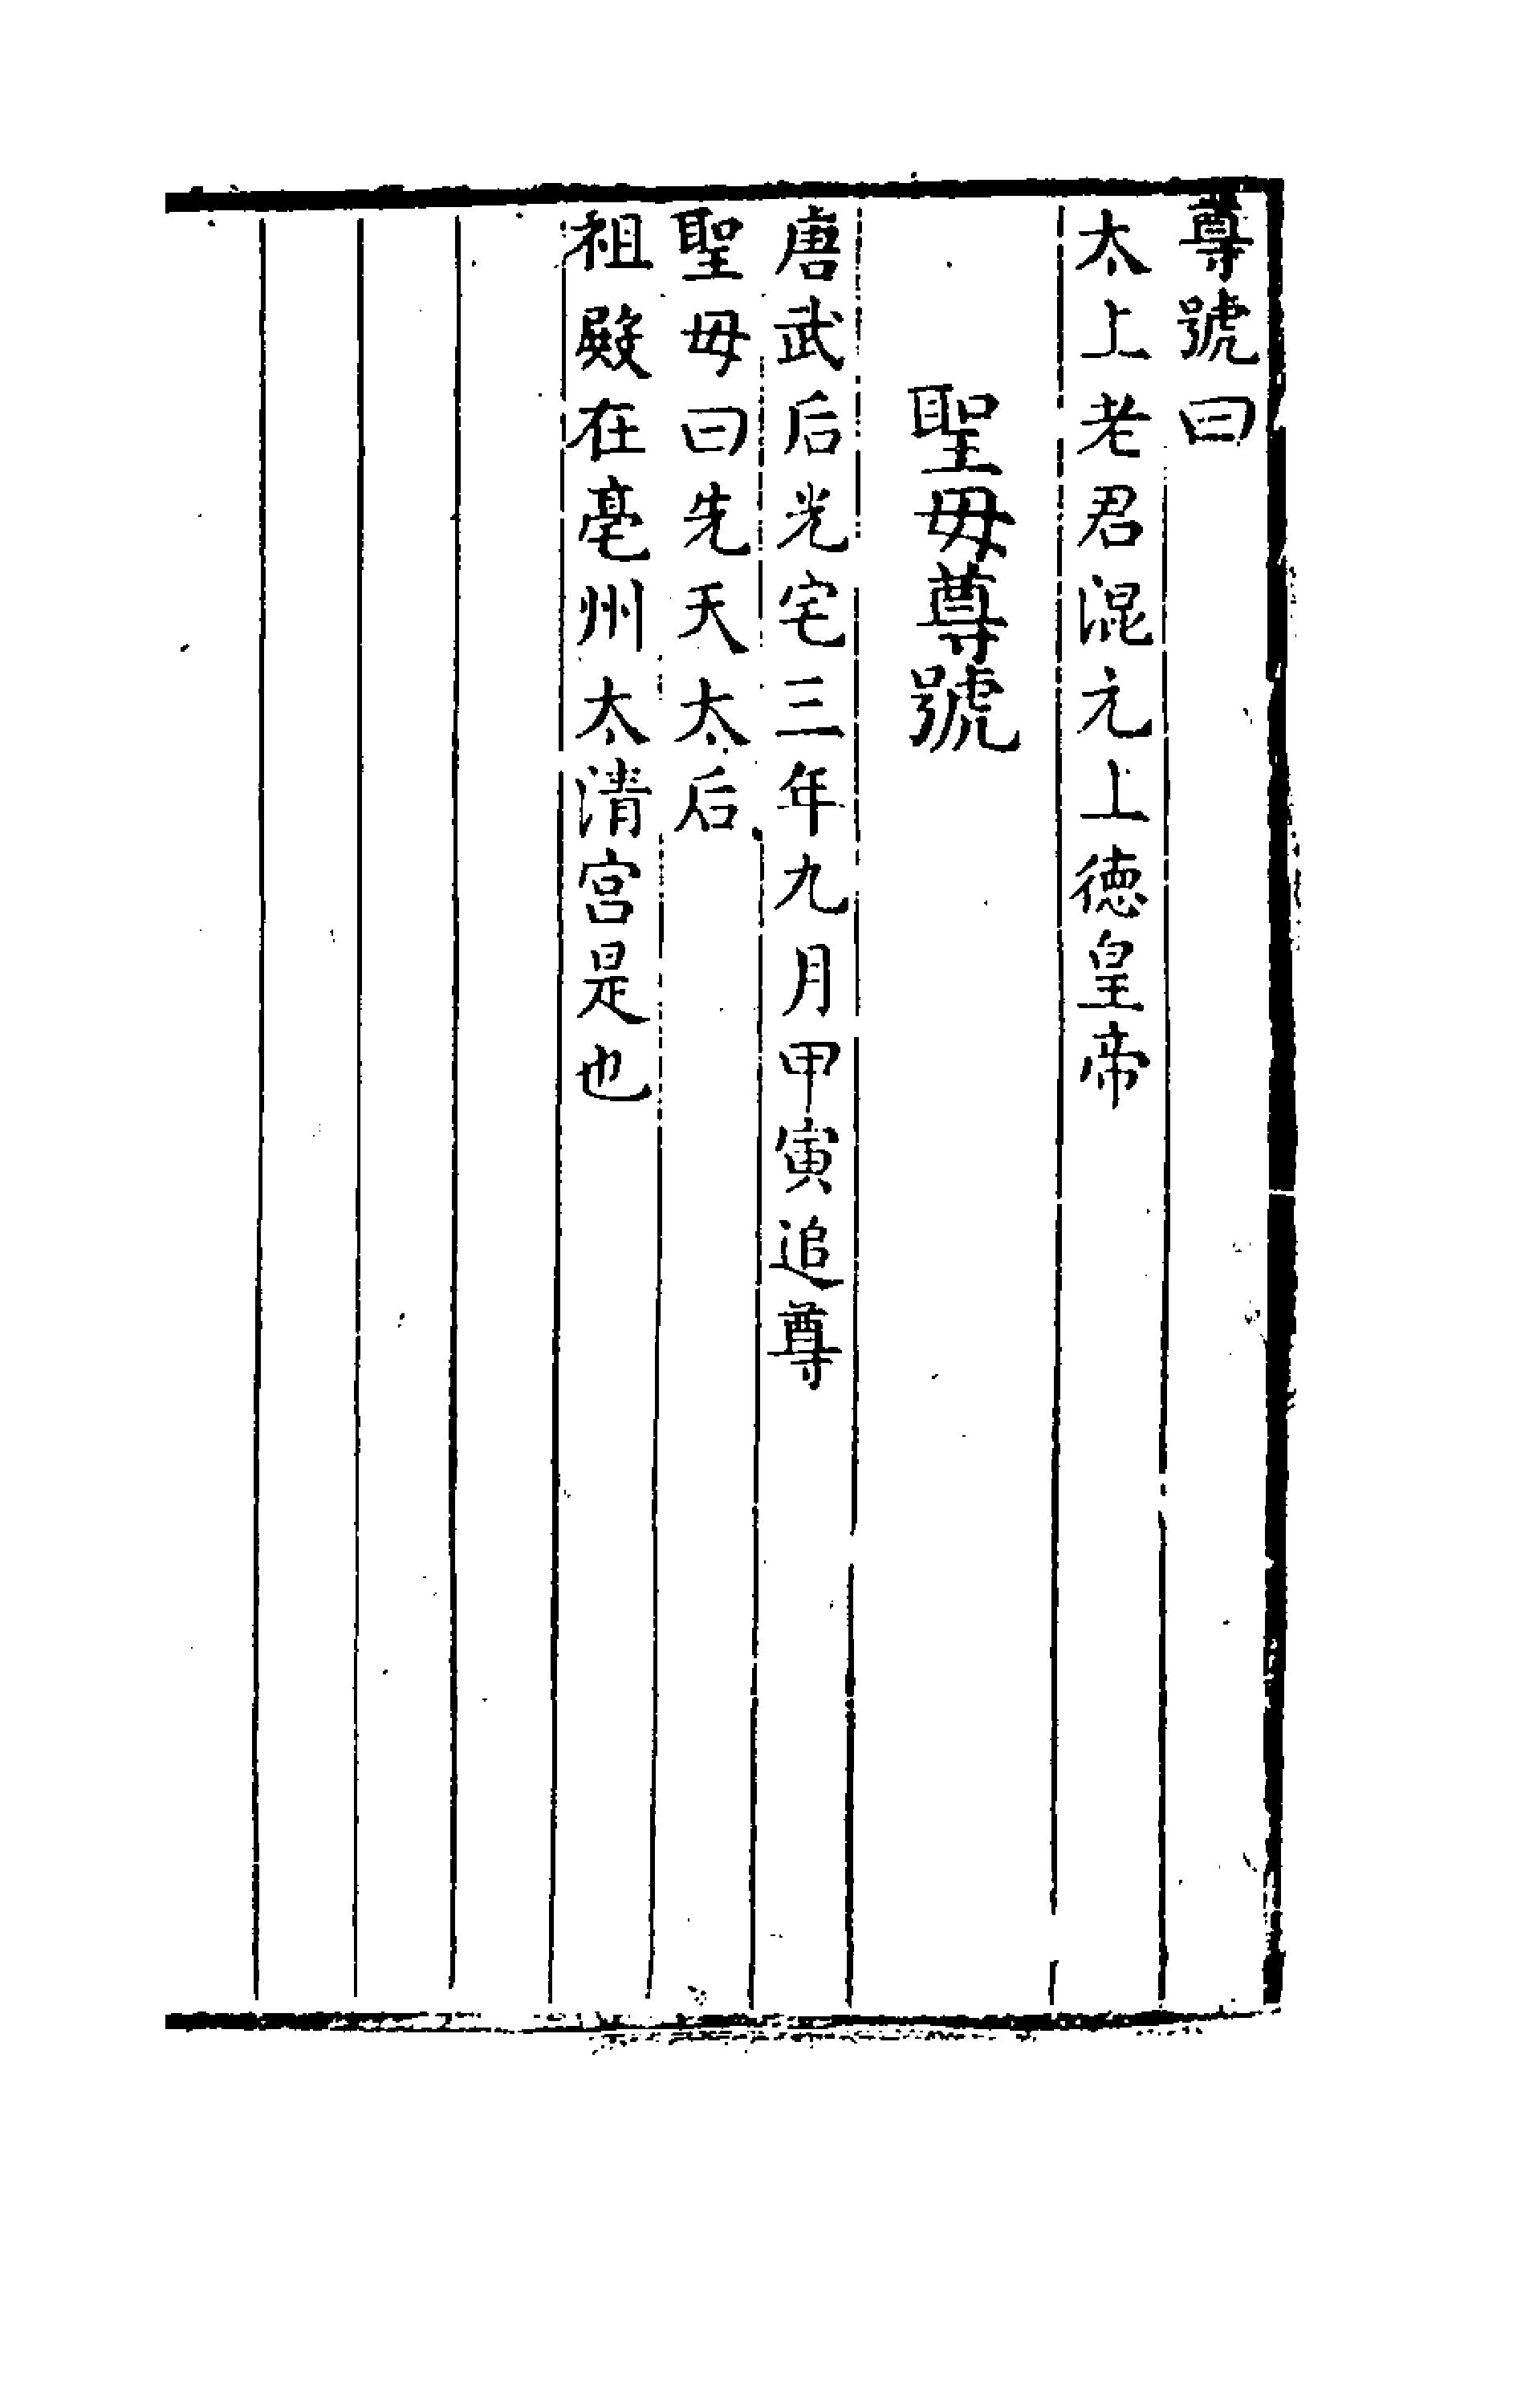 尊號曰
太上老君混元上德皇帝
聖母尊號
唐武后光宅三年九月甲寅追尊
聖母曰先天太后
祖殿在亳州太清宮是也